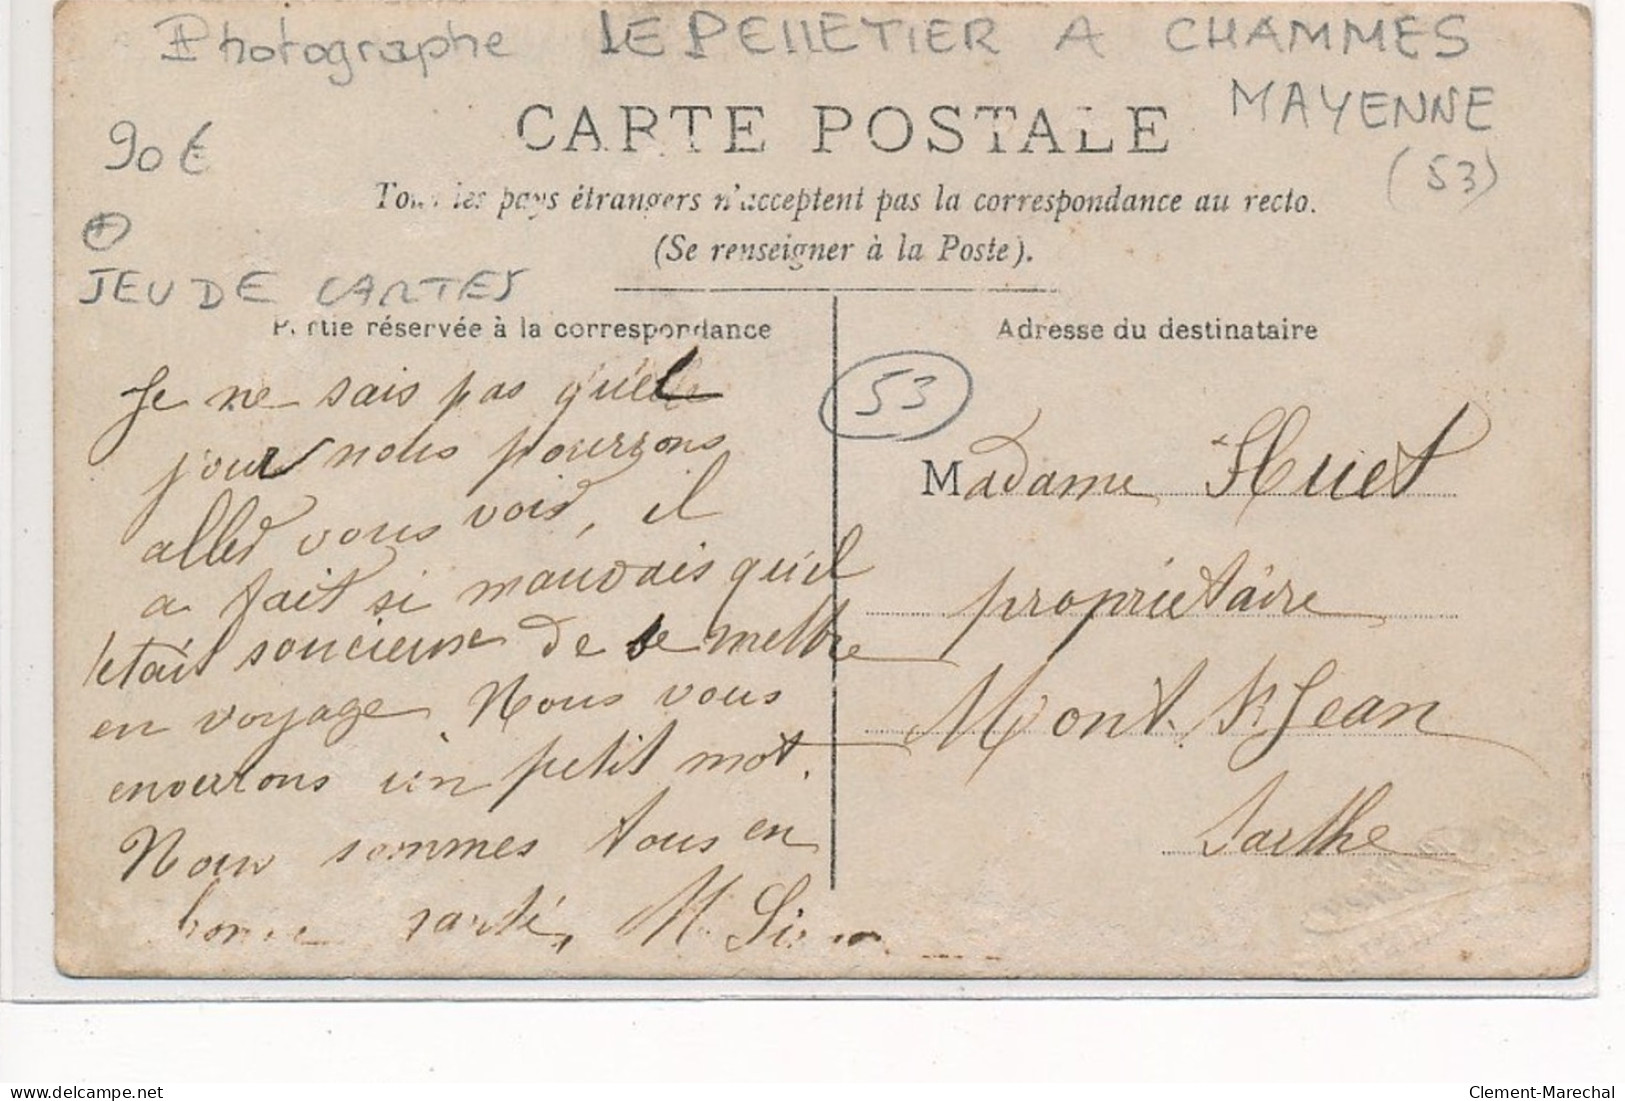 Photographe LE PELLETIER A CHAMMES
MAYENNE
(53)
90€
+
JEU DE CARTES
CARTE POSTALE
Tous les pays étrangers n'acceptent pas la correspondance au recto.
(Se renseigner à la Poste).
Partie réservée à la correspondance
Je ne sais pas quel
jour nous pourrons
aller vous voir, il
a fait si mauvais qu'il
était soucieux de se mettre
en voyage. Nous vous
enverrons un petit mot.
Nous sommes tous en
bonne santé, M.
Adresse du destinataire
53
Madame Huet
propriétaire
Mont St Jean
Sarthe
Clement-Marechal